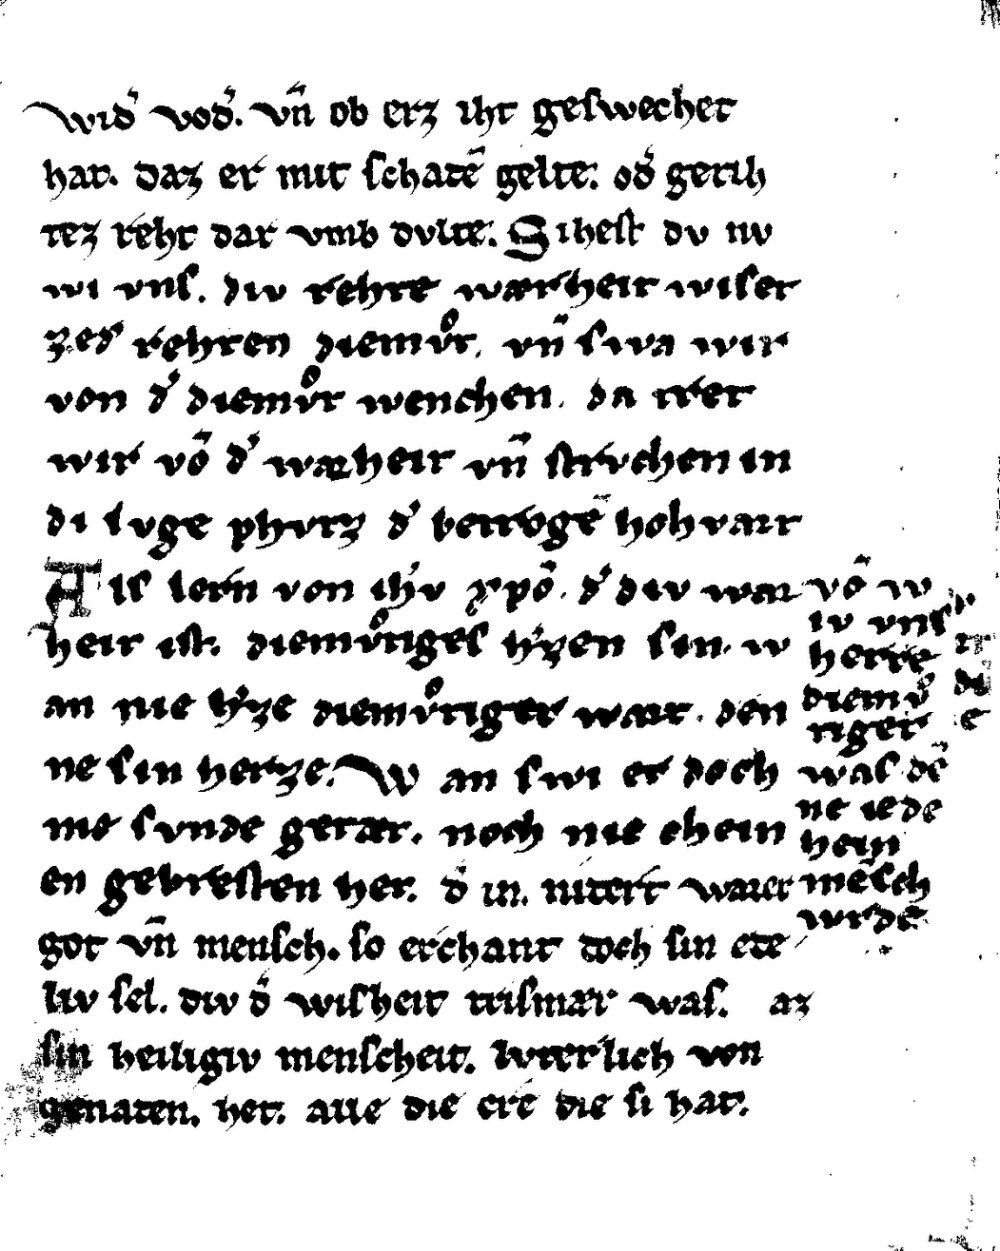 wid͛ vod͛. vn̄ ob erz iht geswechet
hat. daz er mit schatē gelte. od͛ gerih
tez reht dar vmb dvlte. Sihest dv nv
wi vns. div rehte warheit wiser
ze d͛ rehten diemvͦt. vn̄ swa wir
von d͛ diemvͦt wenchen. da tret
wir vō d͛ warheit vn̄ strvchen in
di lvge phvtz d͛ betrogē hohvart
Als lern von ih̄v xp̄o. d͛ div war
heit ist. diemvͦtiges h͛zen sin. w
an nie h͛ze diemvͦtiger wart. den
ne sin hertze. Wan swi er doch
nie svnde getæt. noch nie chein
en gebresten het. d͛ in. nitert warer
got vn̄ mensch. so erchant doch sin ede
liv sel. div d͛ wisheit trismær was. az
sin heiligiv menscheit. lvterlich von
genaten. het. alle die ere die si hat.
vō w
iv vns͛
herre
diemvͦ
tiger
was dē
ne iede
hein
mēsch
wrde